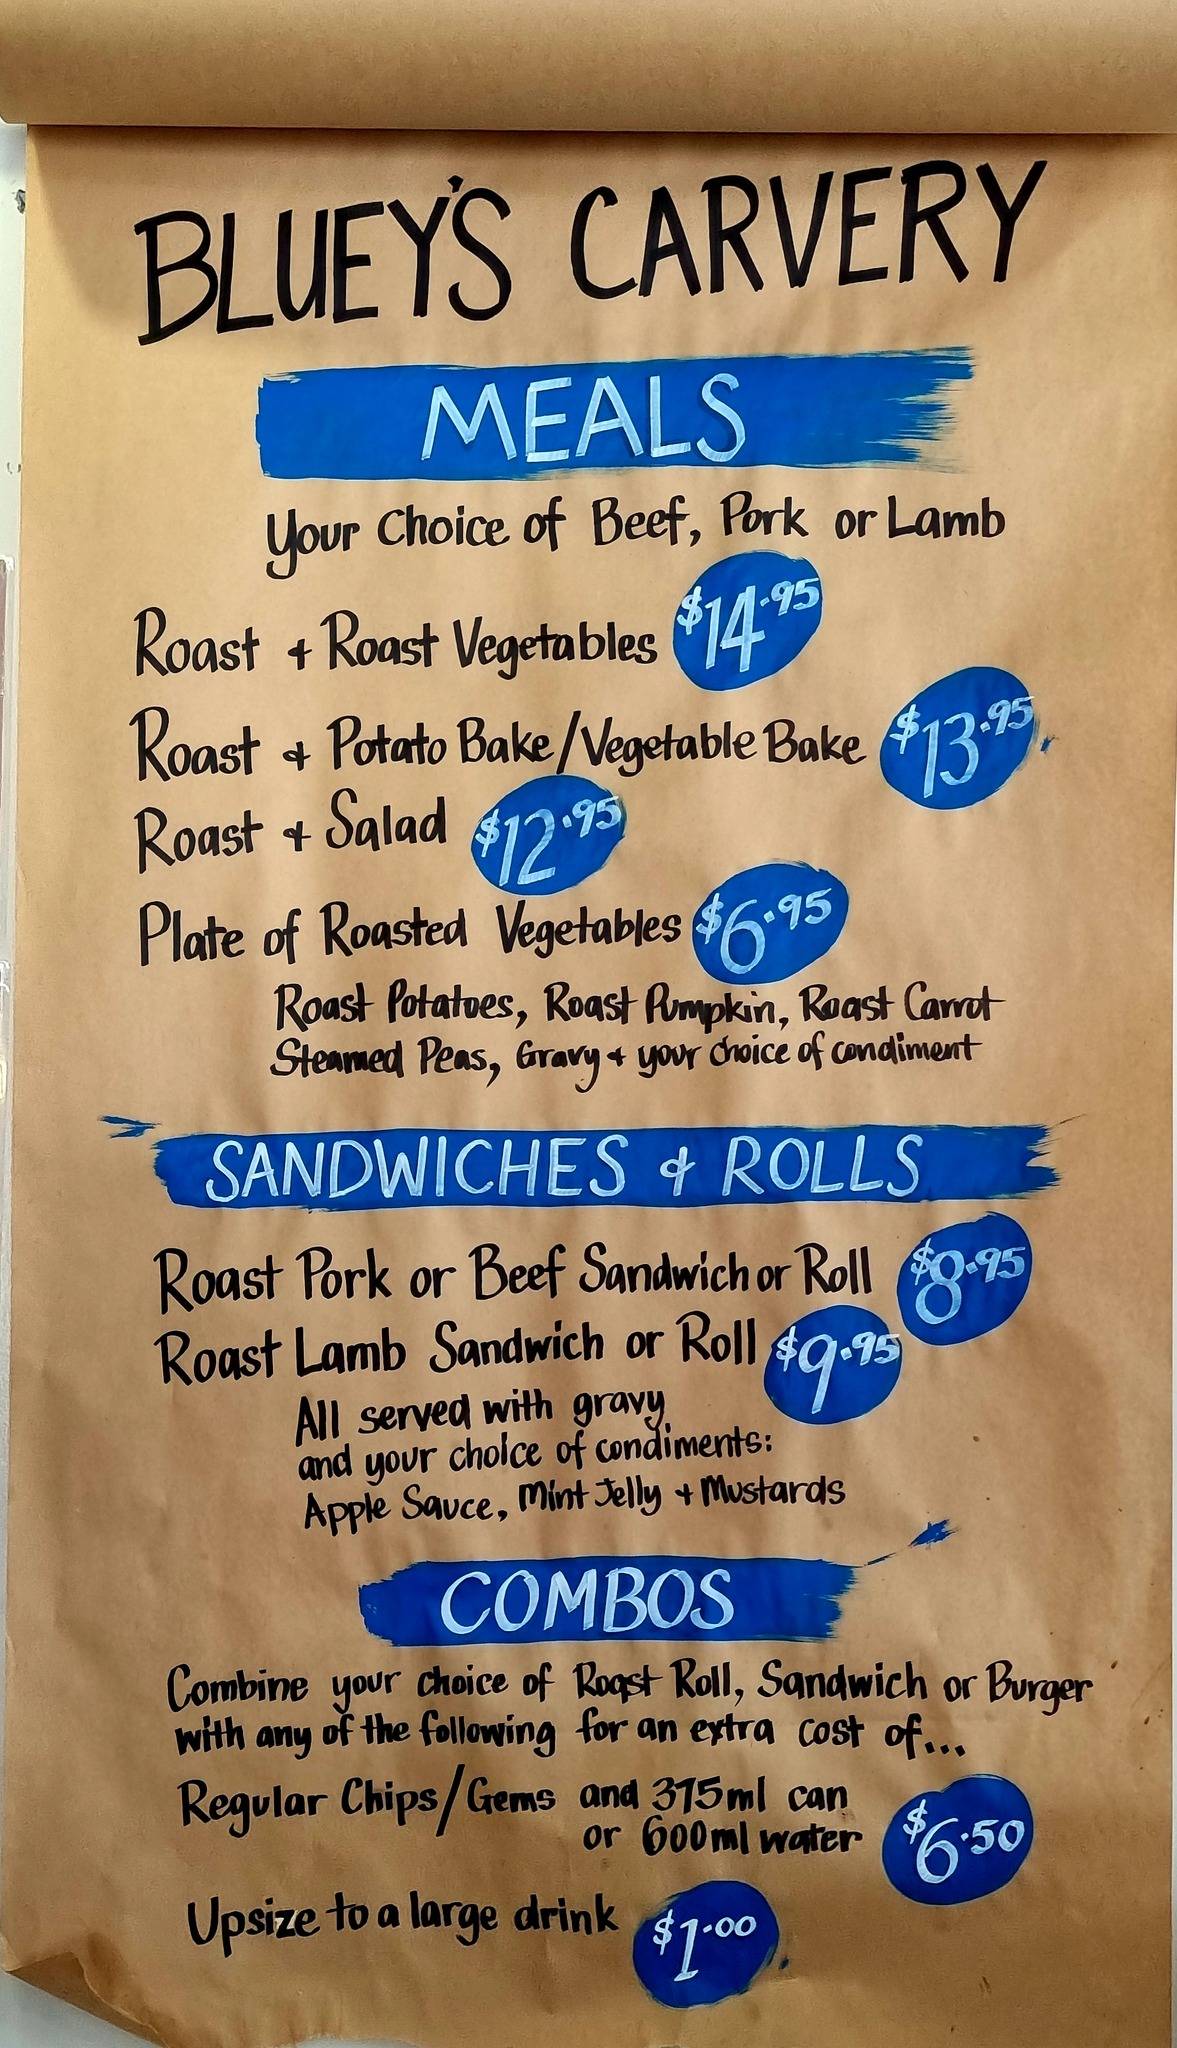 BLUEY'S CARVERY
MEALS
Your Choice of Beef, Pork or Lamb
Roast + Roast Vegetables $14.95
Roast + Potato Bake/Vegetable Bake $13.95
Roast + Salad $12.95
Plate of Roasted Vegetables $6.95
Roast Potatoes, Roast Pumpkin, Roast Carrot
Steamed Peas, Gravy + your choice of condiment
SANDWICHES + ROLLS
Roast Pork or Beef Sandwich or Roll $8.95
Roast Lamb Sandwich or Roll $9.95
All served with gravy
and your choice of condiments:
Apple Sauce, Mint Jelly + Mustards
COMBOS
Combine your choice of Roast Roll, Sandwich or Burger
with any of the following for an extra cost of...
Regular Chips/Gems and 375ml can
or 600ml water $6.50
Upsize to a large drink $1.00